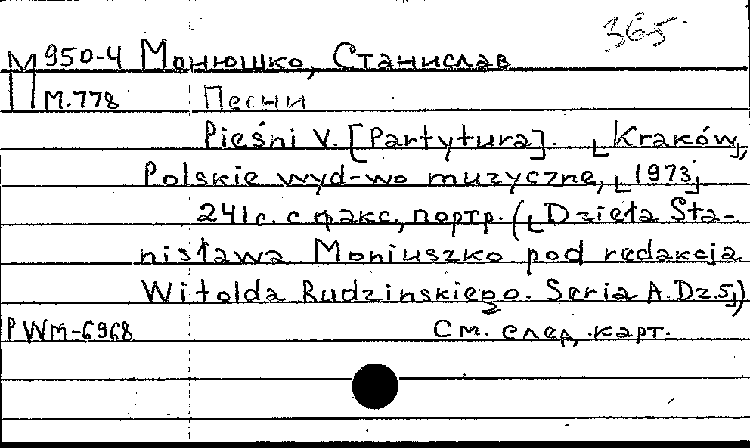 365.
М 950-4 Монюшко, Станислав
П М.778 Песни
Pieśni V. [Partytura]. [Kraków],
Polskie wyd-wo muzyczne, [1973]
241 с. с факс, портр. ([Dzieła Sta-
nisława Moniuszko pod redakcja
Witolda Rudzinskiego. Seria A. Dz.5])
PWM-6968 См. след, карт.